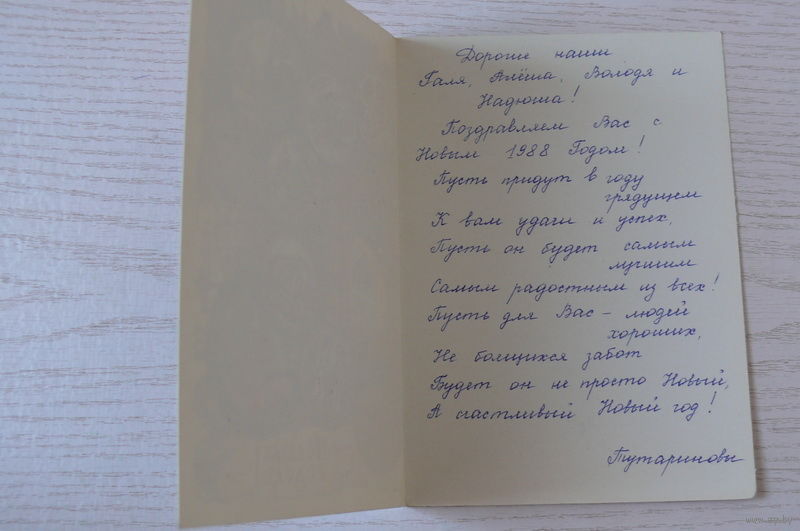 Дорогие наши
Галя, Алёша, Володя и
Надюша!
Поздравляем Вас с
Новым 1988 Годом!
Пусть придут в году
грядущем
К вам удачи и успех,
Пусть он будет самым
лучшим
Самым радостным из всех!
Пусть для Вас – людей
хороших,
Не боящихся забот
Будет он не просто Новый,
А счастливый Новый год!
Путариновы